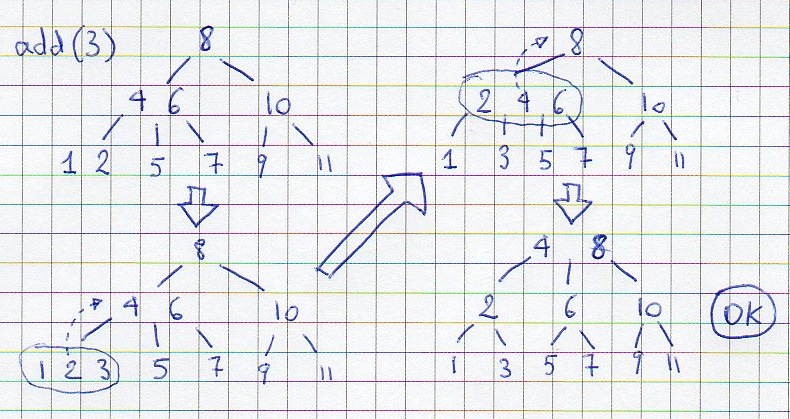 add(3)
8
4 6 10
1 2 5 7 9 11
8
4 6 10
1 2 3 5 7 9 11
8
2 4 6 10
1 3 5 7 9 11
4 8
2 6 10
1 3 5 7 9 11
OK